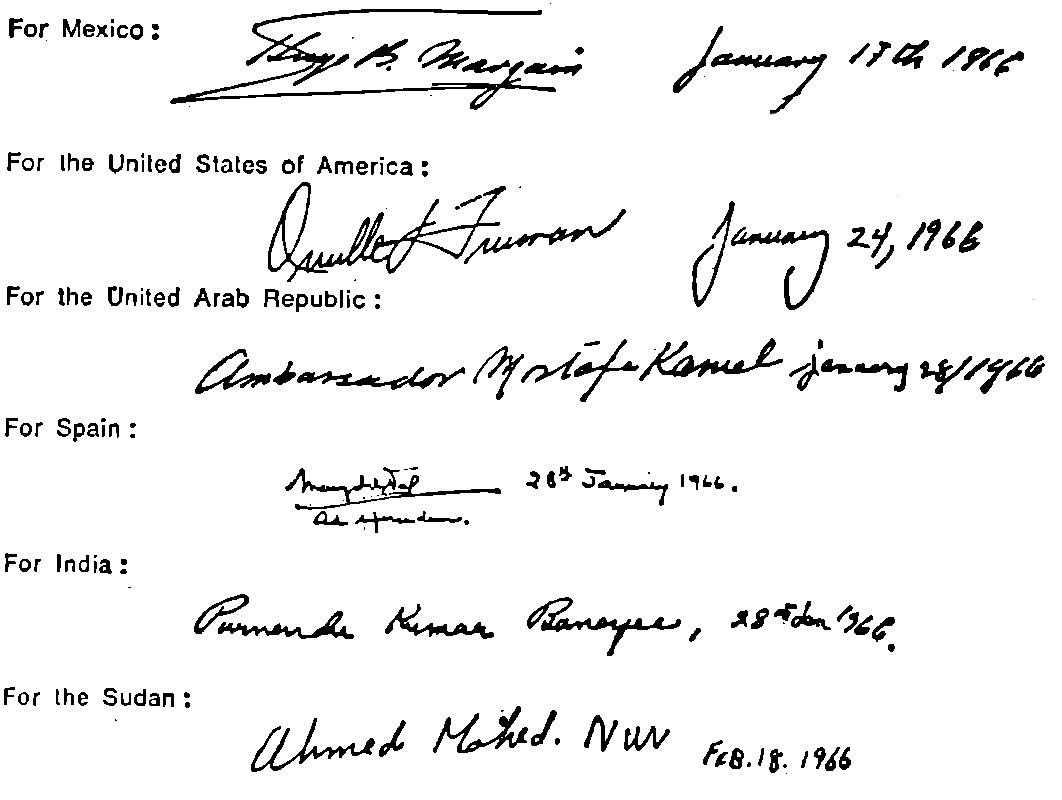 For Mexico:
Hugo B. Margain January 17th 1966
For the United States of America:
Orville L Freeman January 24, 1966
For the United Arab Republic:
Ambassador Mostafa Kamel january 28/1966
For Spain:
28th January 1966.
For India:
Purnendu Kumar Banerjee, 28th Jan 1966.
For the Sudan:
Ahmed Mohed. Nur FEB. 18. 1966